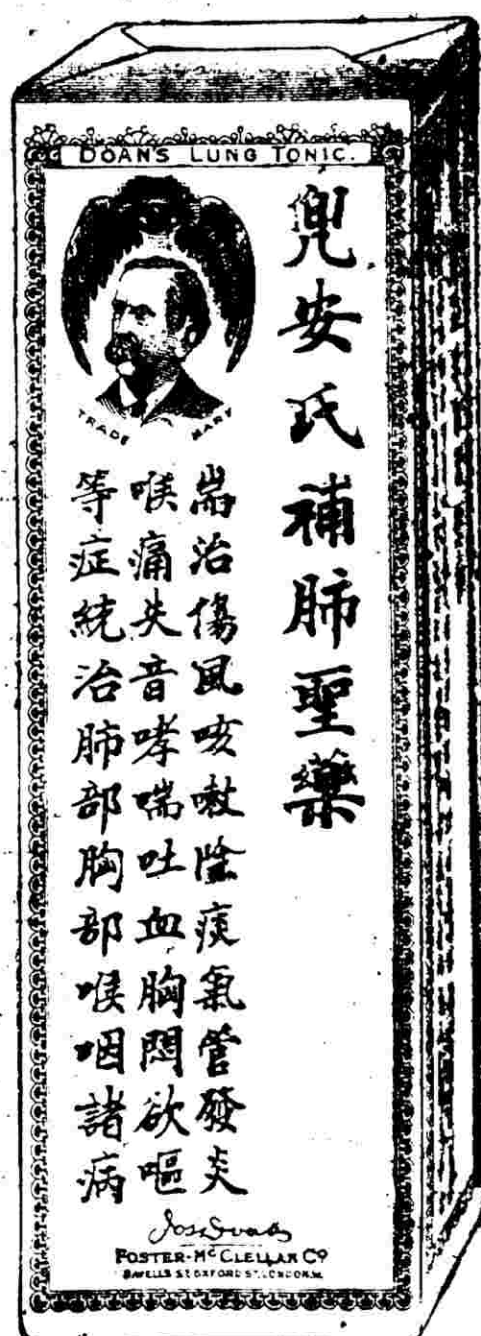 DOAN'S LUNG TONIC.
兜安氏補肺聖藥
TRADE MARK
耑治傷風咳嗽痰氣管發炎
喉痛失音哮喘吐血胸悶欲嘔
等症統治肺部胸部喉咽諸病
FOSTER-McCLELLAN Co
8 WELLS ST OXFORD ST. LONDON.W.